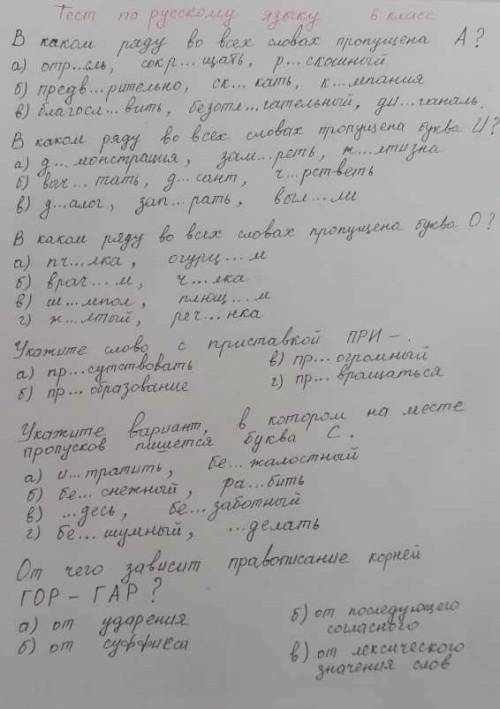 Тест по русскому языку 6 класс
В каком ряду во всех словах пропущена А?
а) отр...сль, сокр...щать, р...скошный
б) предв...рительно, ск...кать, к...мпания
в) благосл...вить, безотл...гательный, ди...гональ.
В каком ряду во всех словах пропущена буква И?
а) д...монстрация, зам...реть, ж...лтизна
б) выч...тать, д...сант, ч...рстветь
в) д...алог, зап...рать, выл...ли
В каком ряду во всех словах пропущена буква О?
а) пч...лка, огурц...м
б) врач...м, ч...лка
в) ш...мпол, плющ...м
г) ж...лтый, реч...нка
Укажите слово с приставкой ПРИ-.
а) пр...сутствовать в) пр...огромный
б) пр...образование г) пр...вращаться
Укажите вариант, в котором на месте
пропусков пишется буква С.
а) и...тратить, бе...жалостный
б) бе...снежный, ра...бить
в) ...десь, бе...заботный
г) бе...шумный, ...делать
От чего зависит правописание корней
ГОР - ГАР?
а) от ударения б) от последующего
согласного
б) от суффикса в) от лексического
значения слов